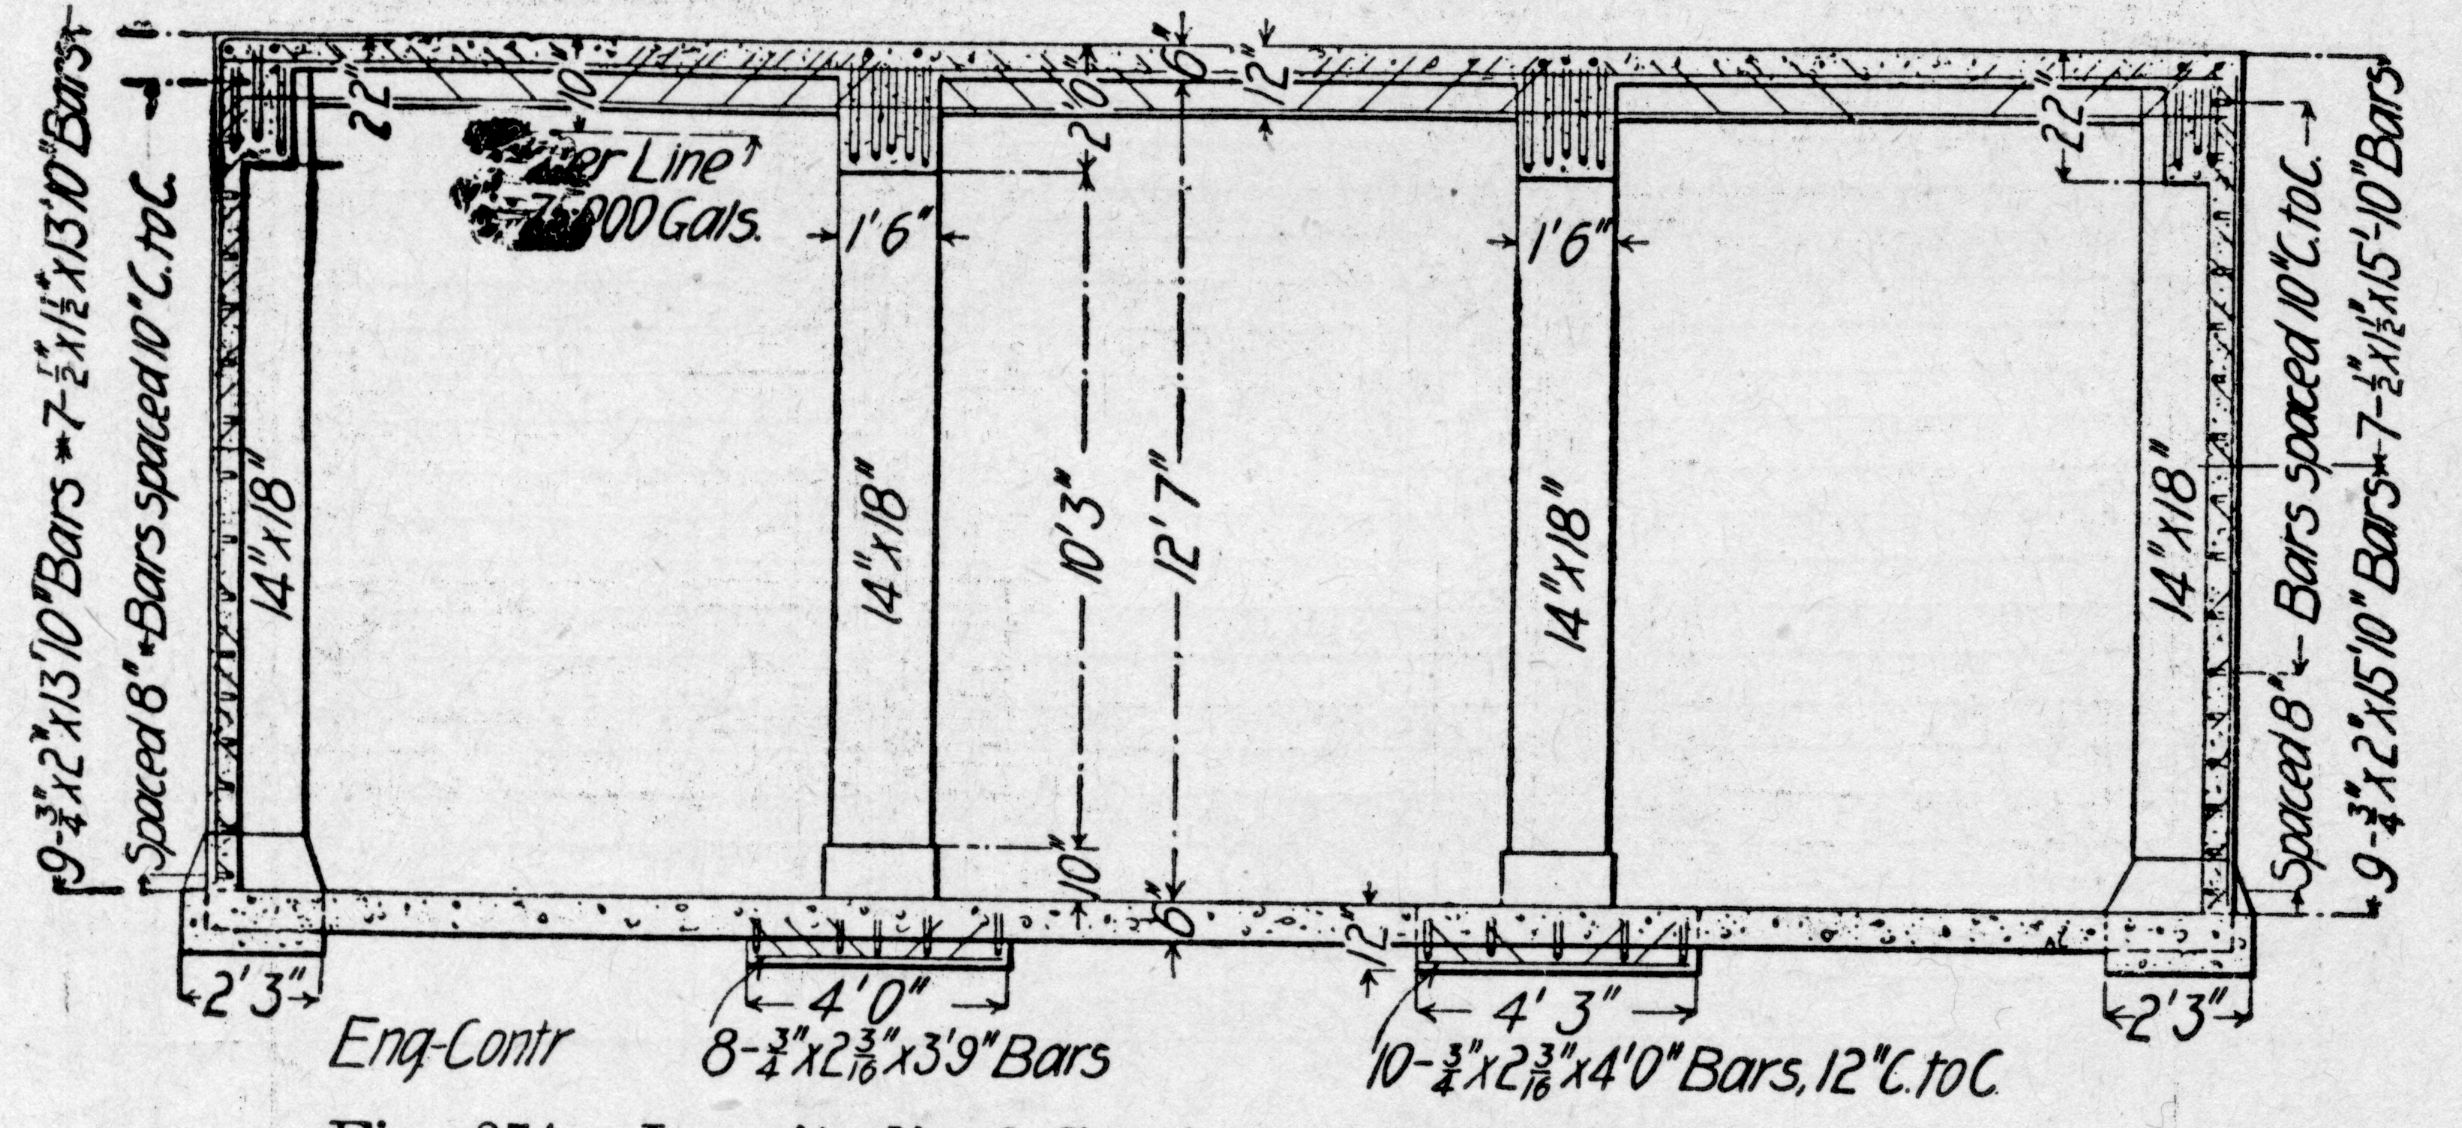 9-3/4"x2"x13'10"Bars 7-1/2"x1 1/2"x13'10"Bars
Spaced 8" Bars spaced 10"C.toC.
22"
10"
Line
000 Gals.
2'0"
6"
12"
22"
1'6"
1'6"
14"x18"
14"x18"
10'3"
12'7"
14"x18"
14"x18"
10"
6"
12"
Spaced 8" Bars spaced 10"C.toC.
9-3/4"x2"x15'10"Bars 7-1/2"x1 1/2"x15'-10"Bars
2'3"
4'0"
4'3"
2'3"
Eng-Contr
8-3/4"x2 3/16"x3'9"Bars
10-3/4"x2 3/16"x4'0"Bars, 12"C.toC.